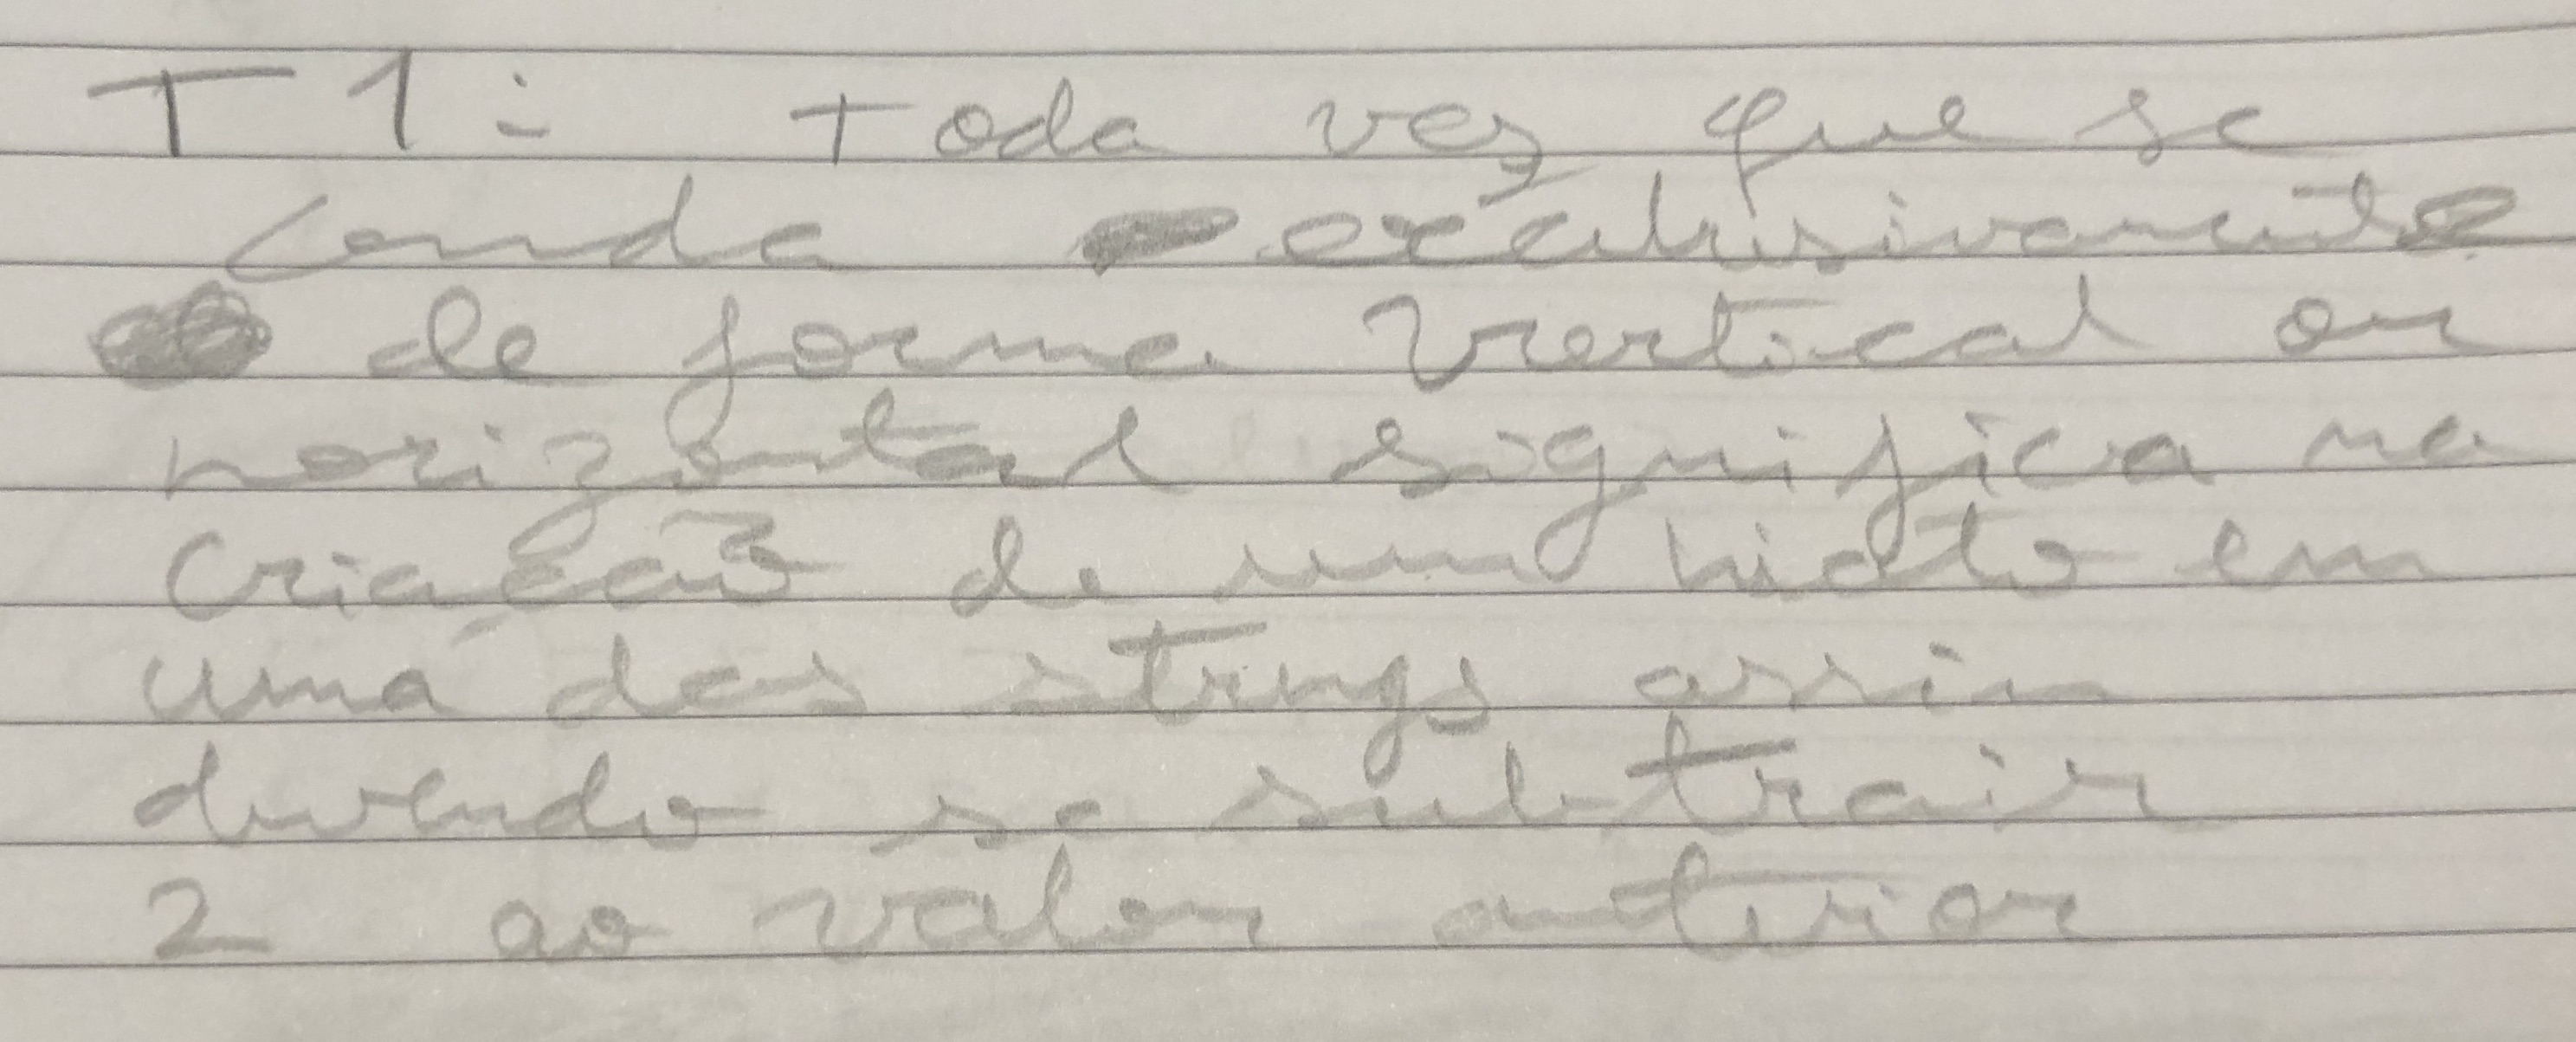 T1: Toda vez que se
anda exclusivamente
de forma vertical ou
horizontal significa na
criação de um hiato em
uma das strings assim
devendo se subtrair
2 ao valor anterior